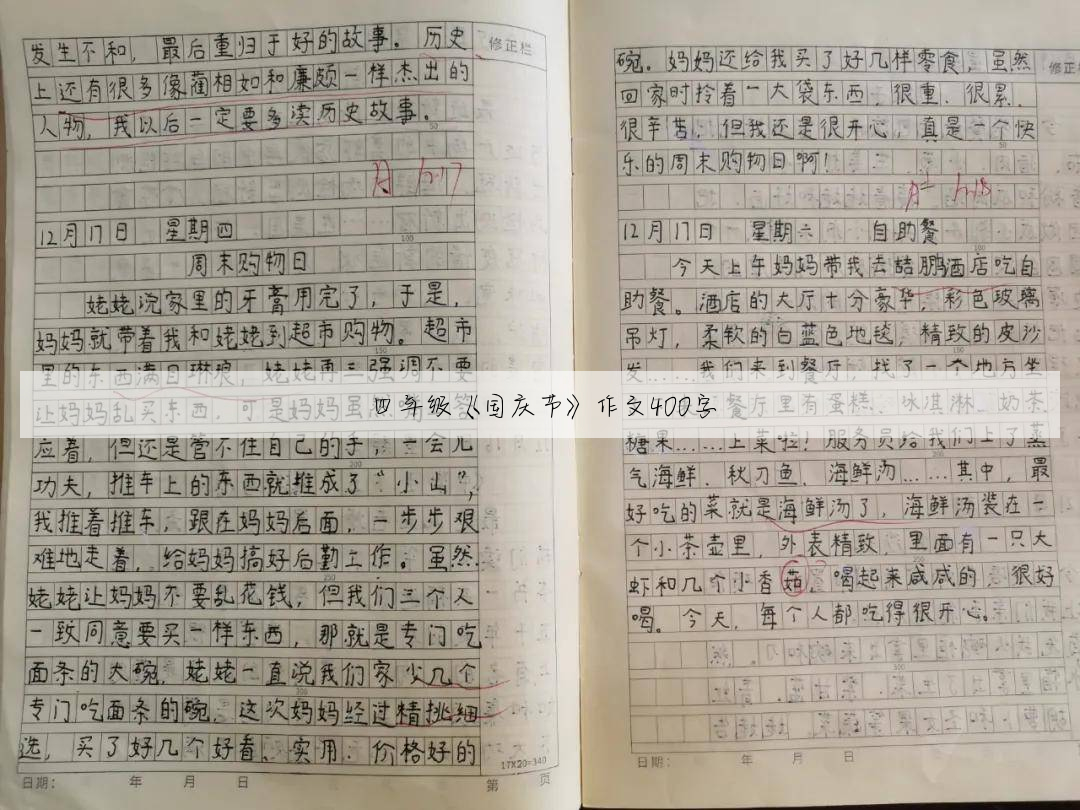 发生不和，最后重归于好的故事。历史
上还有很多像蔺相如和廉颇一样杰出的
人物，我以后一定要多读历史故事。
12月17日 星期四
周末购物日
姥姥说家里的牙膏用完了，于是，
妈妈就带着我和姥姥到超市购物。超市
里的东西满目琳琅，姥姥再三强调不要
让妈妈乱买东西，可是妈妈虽
应着，但还是管不住自己的手，一会儿
功夫，推车上的东西就推成了“小山”，
我推着推车，跟在妈妈后面，一步步艰
难地走着，给妈妈搞好后勤工作。虽然
姥姥让妈妈不要乱花钱，但我们三个人
一致同意要买一样东西，那就是专门吃
面条的大碗，姥姥一直说我们家少几个
专门吃面条的碗，这次妈妈经过精挑细
选，买了好几个好看、实用、价格好的
日期： 年 月 日
17X20=340
第 页
修正栏
碗。妈妈还给我买了好几样零食，虽然
回家时拎着一大袋东西，很重、很累、
很辛苦，但我还是很开心，真是一个快
乐的周末购物日啊！
12月17日 星期六 自助餐
今天上午妈妈带我去喆鹏酒店吃自
助餐。酒店的大厅十分豪华，彩色玻璃
吊灯，柔软的白蓝色地毯，精致的皮沙
发……我们来到餐厅，找了一个地方坐
餐厅里有蛋糕、冰淇淋、奶茶、
糖果……上菜啦！服务员给我们上了蒸
气海鲜、秋刀鱼、海鲜汤……其中，最
好吃的菜就是海鲜汤了，海鲜汤装在一
个小茶壶里，外表精致，里面有一只大
虾和几个小香菇，喝起来咸咸的，很好
喝。今天，每个人都吃得很开心。
日期： 年 月 日
修正
四年级《国庆节》作文400字